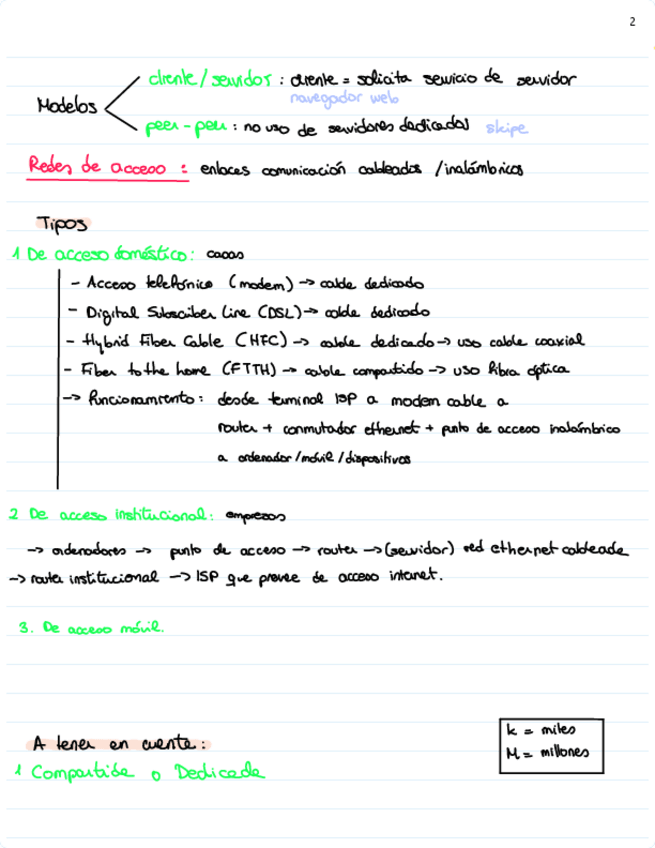 2
cliente/servidor : cliente = solicita servicio de servidor
navegador web
Modelos
peer-peer : no uso de servidores dedicados skipe
Redes de acceso : enlaces comunicación cableados /inalámbricos
Tipos
1 De acceso doméstico: casas
- Acceso telefónico (modem) -> cable dedicado
- Digital Subscriber Line (DSL) -> cable dedicado
- Hybrid Fiber Cable (HFC) -> cable dedicado -> uso cable coaxial
- Fiber to the home (FTTH) -> cable compartido -> uso fibra óptica
-> Funcionamiento: desde terminal ISP a modem cable a
router + conmutador ethernet + punto de acceso inalámbrico
a ordenador/móvil/dispositivos
2 De acceso institucional: empresas
-> ordenadores -> punto de acceso -> router -> (servidor) red ethernet cableada
-> router institucional -> ISP que provee de acceso internet.
3. De acceso móvil.
A tener en cuenta:
1 Compartida o Dedicada
k = miles
M = millones